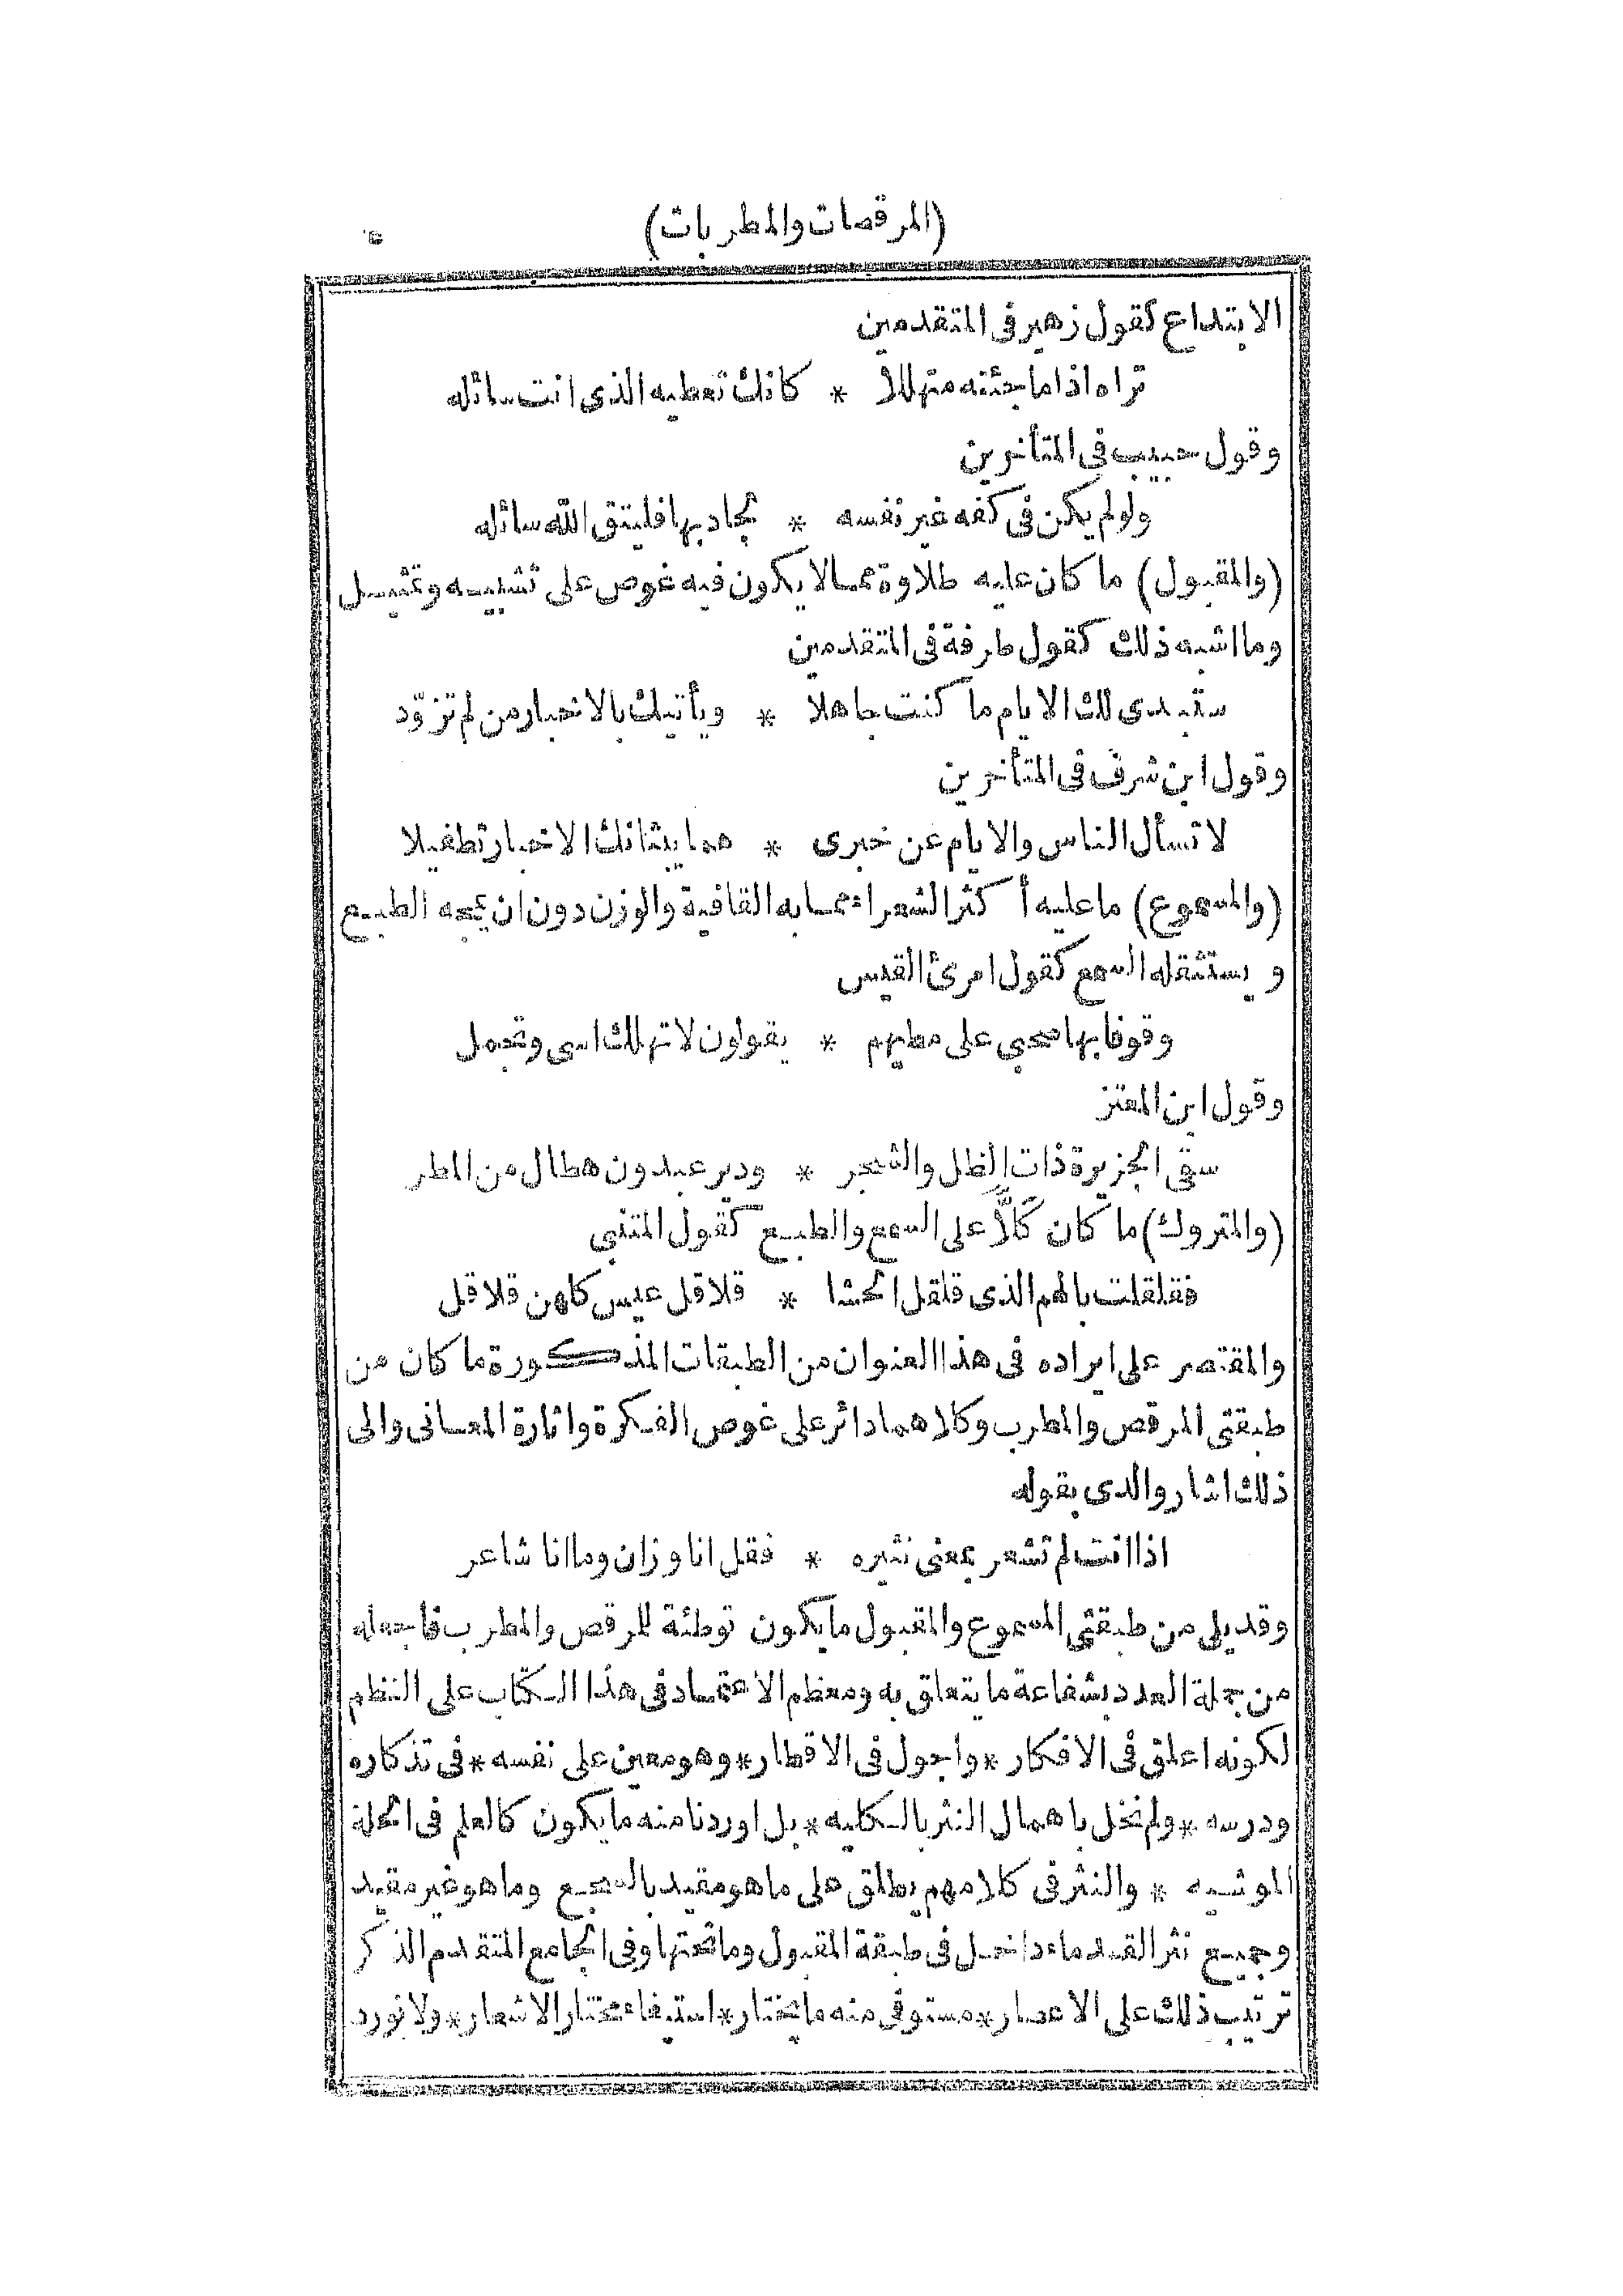 (المرقصات والمطربات)
٥
الابتداع كقول زهير فى المتقدمين
تراه اذا ما جئته متهللا * كانك تعطيه الذى انت سائله
وقول حبيب فى المتأخرين
ولو لم يكن فى كفه غير نفسه * لجاد بها فليتق الله سائله
(والمقبول) ما كان عليه طلاوة مما لا يكون فيه غوص على تشبيه وتمثيل
وما اشبه ذلك كقول طرفة فى المتقدمين
ستبدى لك الايام ما كنت جاهلا * ويأتيك بالاخبار من لم تزوّد
وقول ابن شرف فى المتأخرين
لا تسأل الناس والايام عن خبرى * هما يبثانك الاخبار تطفيلا
(والمسموع) ما عليه أكثر الشعراء مما به القافية والوزن دون ان يمجه الطبع
ويستثقله السمع كقول امرئ القيس
وقوفا بها صحبي على مطيهم * يقولون لا تهلك اسى وتجمل
وقول ابن المعتز
سقى الجزيرة ذات الظل والشجر * ودير عبدون هطال من المطر
(والمتروك) ما كان كَلَّا على السمع والطبع كقول المتنبي
فقلقلت بالهم الذى قلقل الحشا * قلاقل عيس كلهن قلاقل
والمقتصر على ايراده فى هذا العنوان من الطبقات المذكورة ما كان من
طبقتى المرقص والمطرب وكلاهما دائر على غوص الفكرة واثارة المعانى والى
ذلك اشار والدى بقوله
اذا انت لم تشعر بمعنى نثيره * فقل انا وزان وما انا شاعر
وقد يلى من طبقتى المسموع والمقبول ما يكون توطئة للمرقص والمطرب فاجعله
من جملة العدد بشفاعة ما يتعلق به ومعظم الاعتماد فى هذا الكتاب على النظم
لكونه اعلق فى الافكار * واجول فى الاقطار * وهو معين على نفسه * فى تذكاره
ودرسه * ولم نخل باهمال النثر بالكليه * بل اوردنا منه ما يكون كالعلم فى الحلة
الموشيه * والنثر فى كلامهم يطلق على ما هو مقيد بالسجع وما هو غير مقيد
وجميع نثر القدماء داخل فى طبقة المقبول وما تحتها وفى الجامع المتقدم الذكر
ترتيب ذلك على الاعصار * مستوفى منه ما يختار * استيفاء مختار الاشعار * ولا نورد